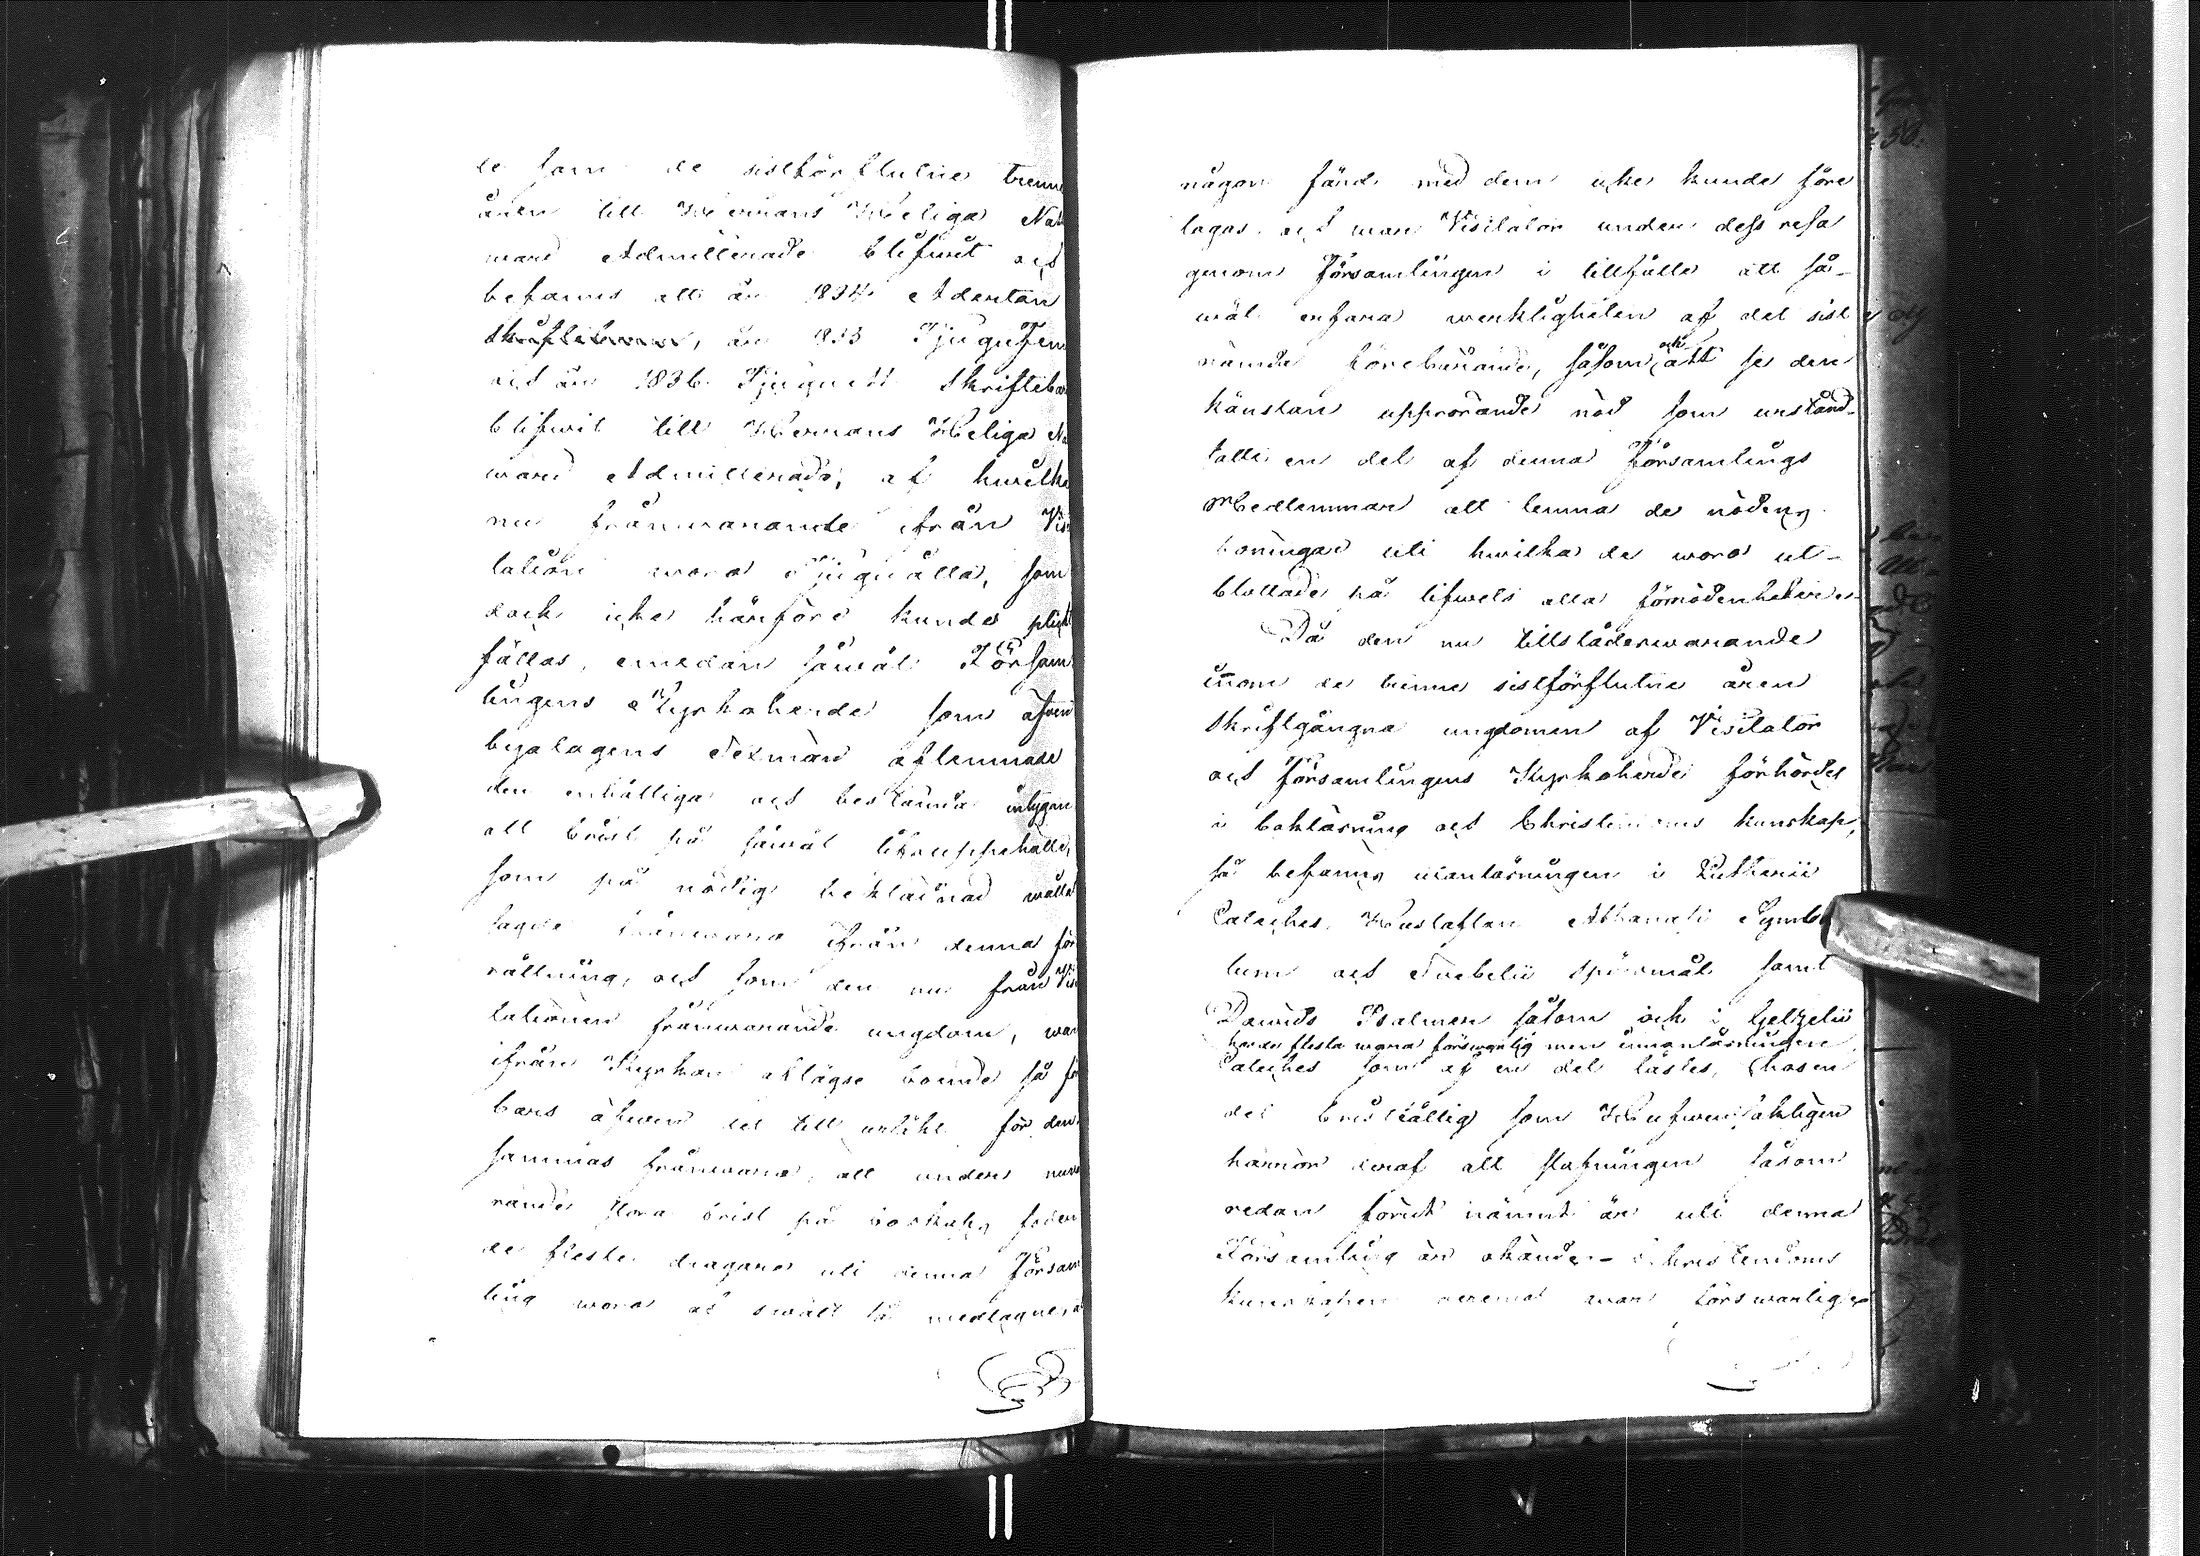 de som de sistförflutne trenne
åren till Herrans Heliga Natt
ward Admitterade blifwit och
befanns att år 1834 Aderton
skriftebarn, år 1835 Tjugufem
och år 1836 Tjuguett Skriftebar
blifwit till Herrans Heliga Na
ward Admitterade, af hwilka
nu frånwarande ifrån Visi
tation woro Tjuguåtta, som
dock icke härföre kunde plikt
fällas, emedan såwäl Försam
lingens Kyrkoherde som äfven
byalagens Sexmän aflemnade
den enhälliga och bestämda intygen
att brist på såwäl lifsuppehälle,
som på nödig beklädnad wållat
sagde frånwaro ifrån denna för
rättning, och som den nu från Visi
tationen frånwarande ungdom, war
ifrån Kyrkan aflägse boende så
bars äfwen det till urskäl för den
sammas frånwaro, att under nuva
rande stora brist på boskaps foder
de fleste dragare uti denna Försam
ling woro af swält så medtagne, a
någon färd med dem icke kunde före
tagas, och war Visitator under dess resa
genom Församlingen i tillfälle att så-
wäl erfara werkligheten af det sist
nämde förebärande, såsom ock att se den
känslan upprörande nöd som urständ-
satte en del af denna Församlings
Medlemmar att lemna de nödens
boningar uti hwilka de woro ut-
blottade på lifwets alla förnödenheter
Då den nu tillstädeswarande
inom de trenne sistförflutne åren
skriftgångna ungdomen af Visitator
och Församlingens Kyrkoherde förhördes
i bokläsning och Christendoms kunskap,
så befanns utanläsningen i Lutherii
Cateches, Hustaflan Athanasii Symbo
lum och Svebelii Spörsmål samt
Davids Psalmen såsom ock i Gelzelii
hos de flesta wara förswarlig men innanläsningen
Cateches som af en del lästes, hos en
del bristfällig som Hufwudsakligen
härrör deraf att stafningen såsom
redan förut nämnt är uti denna
Församling är okänd - Christendoms
kunskapen deremot war förswarlig